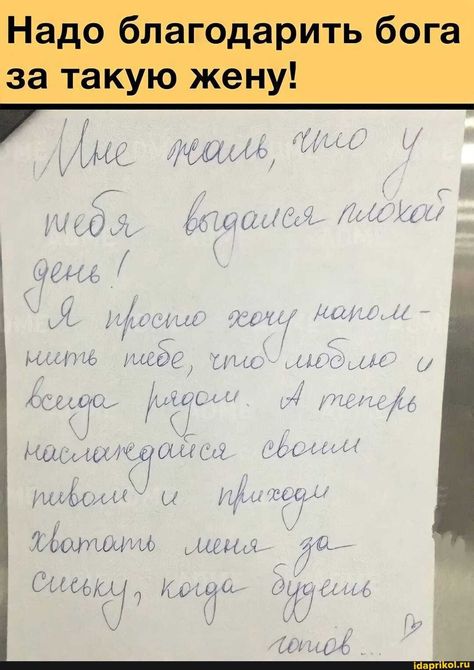 Надо благодарить бога
за такую жену!
Мне жаль, что у
тебя выдался плохой
день!
Я просто хочу напом-
нить тебе, что люблю и
всегда рядом. А теперь
наслаждайся своим
пивом и приходи
хватать меня за
сиську, когда будешь
готов...
idaprikol.ru